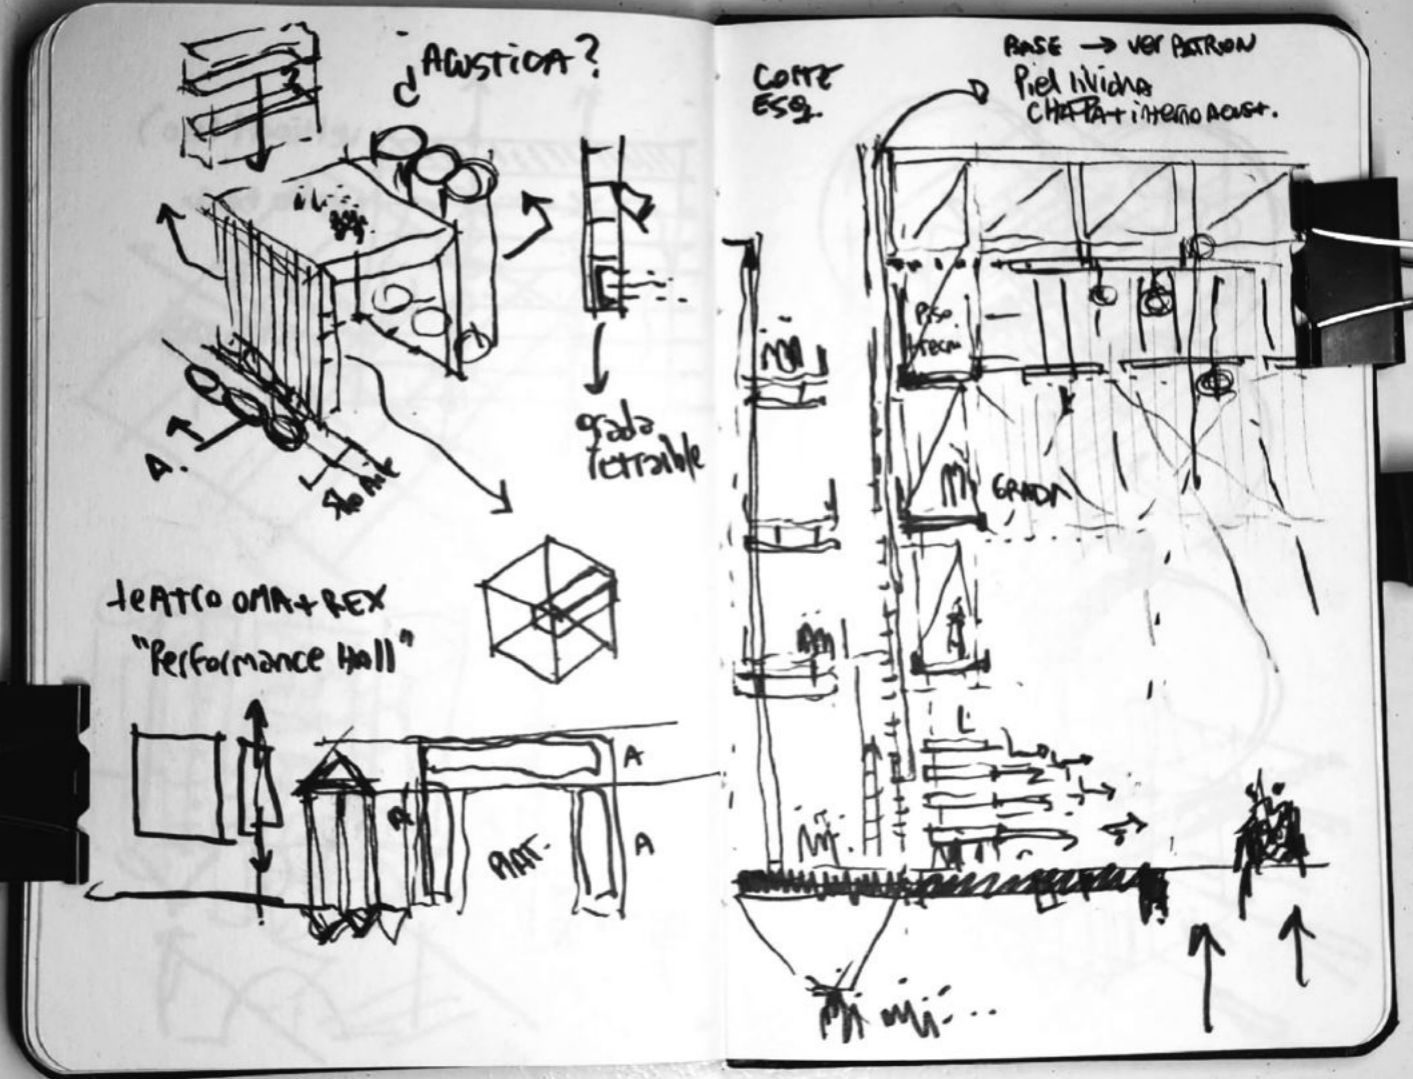 ¿ACUSTICA?
grada
retraible
A.
teATRO OMA+REX
"Performance Hall"
A
A
A
CORTE
ESQ.
BASE → VER PATRON
Piel liviana
CHAPA+interno Acust.
Piso
tecn
GRADA